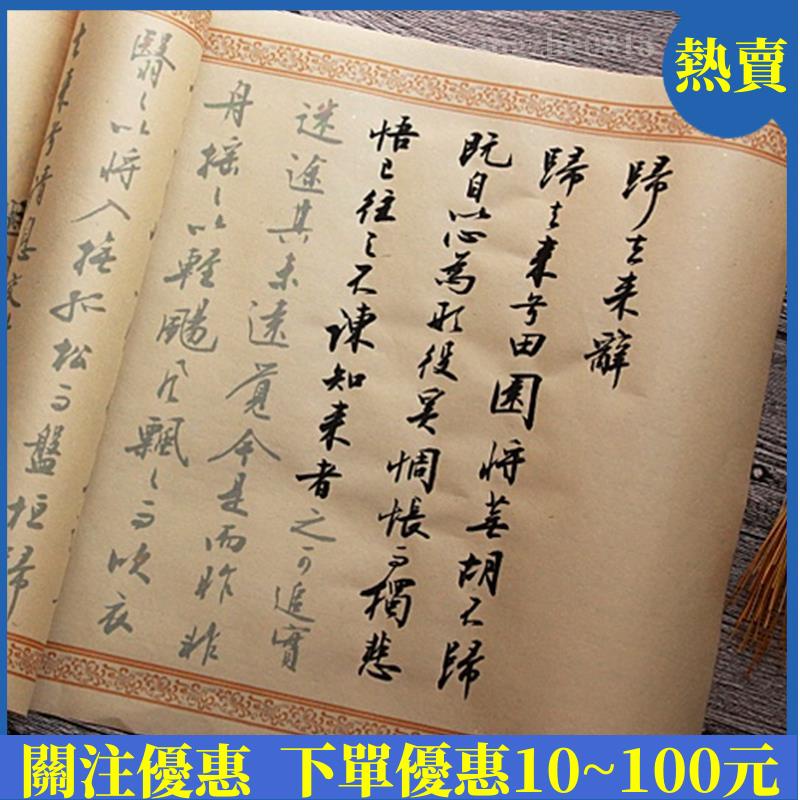 熱賣
歸去来辭
歸去来兮田園將蕪胡不歸
既自以心為形役奚惆悵而獨悲
悟已往之不諫知来者之可追實
迷途其未遠覺今是而昨非
舟搖〻以輕颺風飄〻而吹衣
翳〻以將入撫孤松而盤桓歸
去来兮請息
關注優惠 下單優惠10~100元